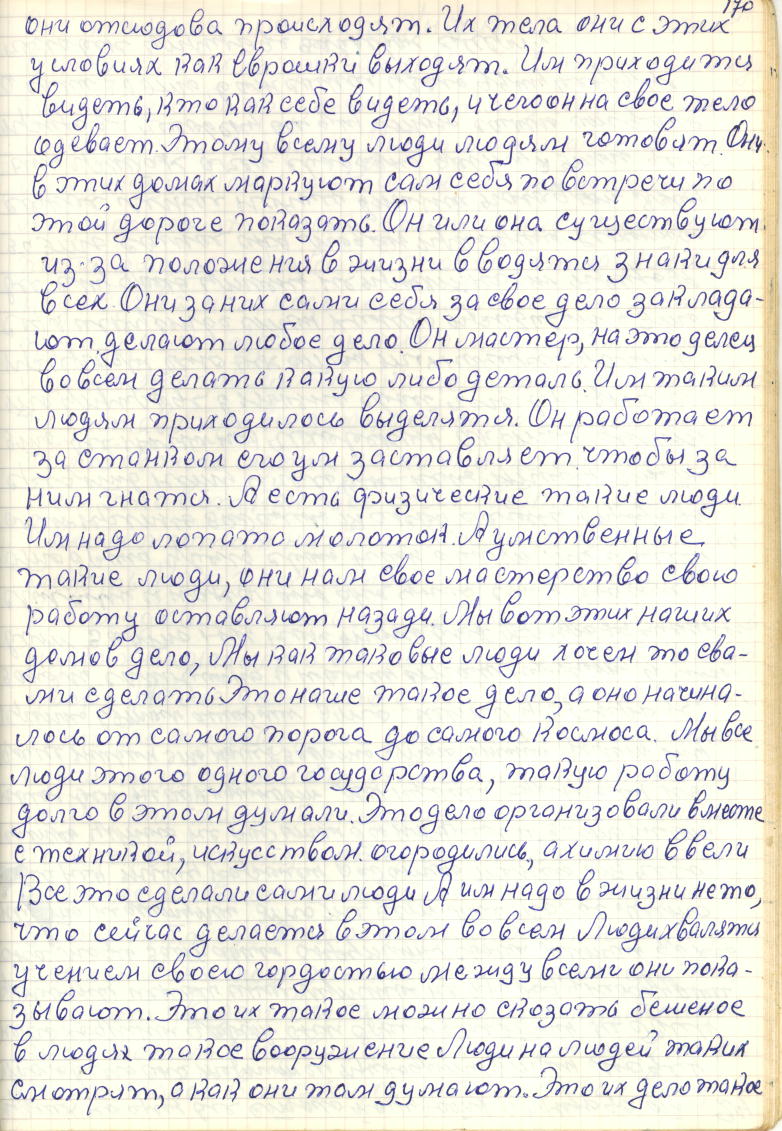 170
они отсюдова происходят. Их тела они с этих
условиях как еврошки выходят. Им приходится
видеть, кто как себе видеть, и чего он на свое тело
одевает. Этому всему люди людям готовят. Они
в этих домах маркуют сам себя по встречи по
этой дороге показать. Он или она существуют.
из-за положения в жизни вводятся знаки для
всех. Они за них сами себя за свое дело заклада-
ют. делают любое дело. Он мастер, на это делец
во всем делать какую либо деталь. Им таким
людям приходилось выделятся. Он работает
за станком его ум заставляет. чтобы за
ним гнатся. А есть физические такие люди.
Им надо лопата молоток. А умственные
такие люди, они нам свое мастерство свою
работу оставляют назади. Мы вот этих наших
домов дело, Мы как таковые люди хочем то сва-
ми сделать Это наше такое дело, а оно начина-
лось от самого порога до самого Космоса. Мы все
люди этого одного государства, такую работу
долго в этом думали. Это дело организовали вместе
с техникой, искусством. огородились, а химию ввели
Все это сделали сами люди А им надо в жизни не то,
что сейчас делается в этом во всем Люди хвалятся
учением своею гордостью между всеми они пока-
зывают. Это их такое можно сказать бешеное
в людях такое вооружение Люди на людей таких
смотрят, а как они там думают. Это их дело такое